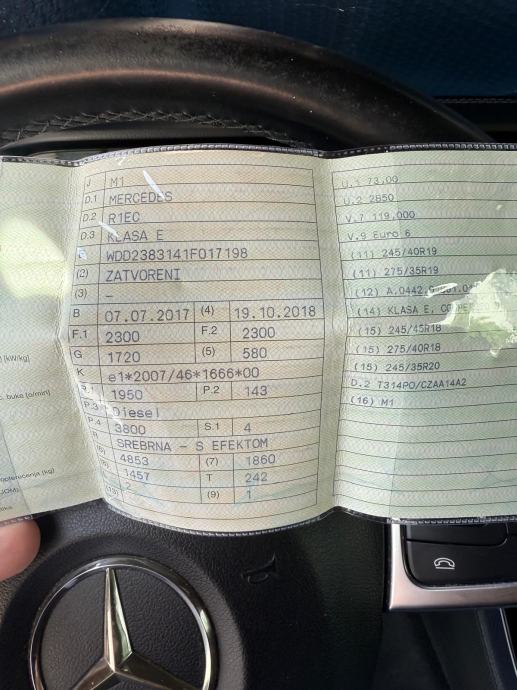 J M1
D.1 MERCEDES
D.2 R1EC
D.3 KLASA E
E WDD2383141F017198
(2) ZATVORENI
(3) –
B 07.07.2017 (4) 19.10.2018
F.1 2300 F.2 2300
G 1720 (5) 580
K e1*2007/46*1666*00
P.1 1950 P.2 143
P.3 Diesel
P.4 3800 S.1 4
R SREBRNA - S EFEKTOM
(6) 4853 (7) 1860
(8) 1457 T 242
2 (9) 1
[kW/kg]
buke [o/min]
[kg]
U.1 73,00
U.2 2850
V.7 119,000
V.9 Euro 6
(11) 245/40R19
(11) 275/35R19
(12) A.0442.
(14) KLASA E,
(15) 245/45R18
(15) 275/40R18
(15) 245/35R20
D.2 7314PO/CZAA14A2
(16) M1